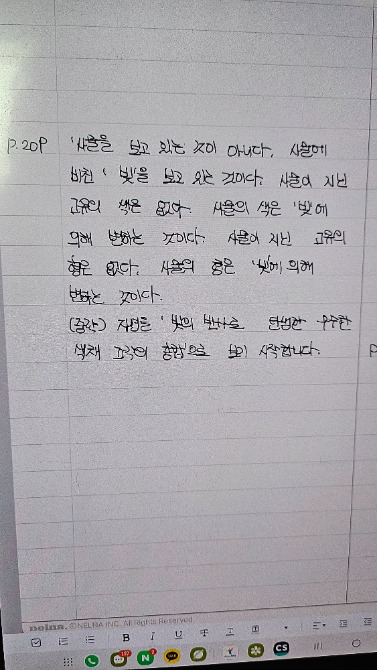 P.209 '사물을 보고 있는 것이 아니다. 사물에
비친 '빛'을 보고 있는 것이다. 사물이 지닌
고유의 색은 없다. 사물의 색은 '빛'에
의해 변하는 것이다. 사물이 지닌 고유의
형은 없다. 사물의 형은 '빛'에 의해
변하는 것이다.
(중략) 자연을 '빛의 반사로 탄생한 무수한
색채 조각의 종합'으로 보기 시작합니다.
P
nelna. ©NELNA INC. All Rights Reserved.
B I U T
N
CS